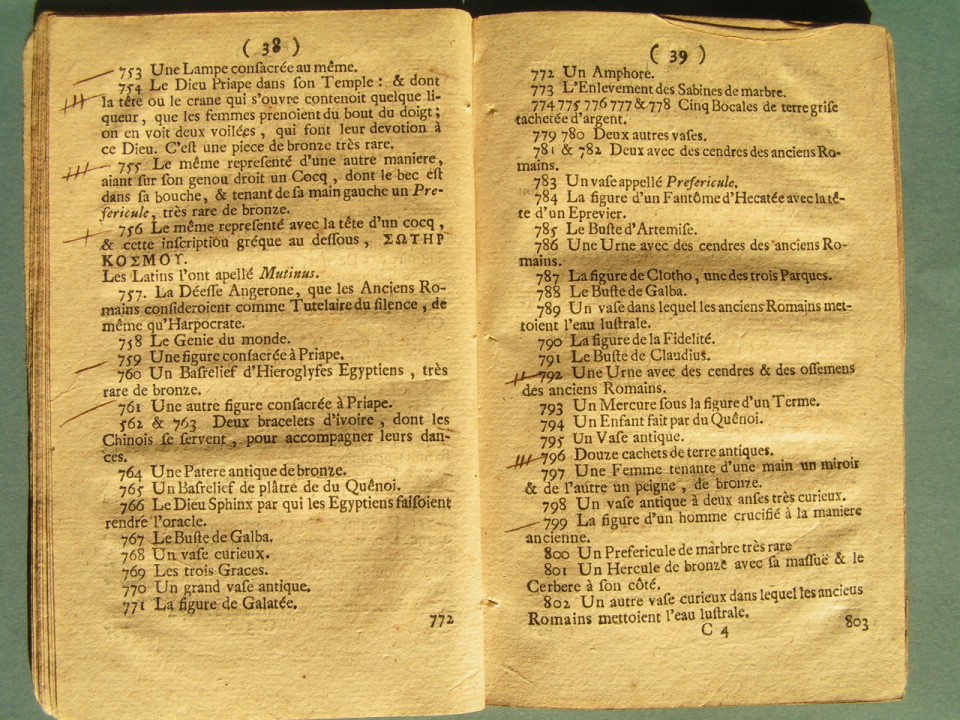 ( 38 )
753 Une Lampe conſacrée au même.
754 Le Dieu Priape dans ſon Temple : & dont
la tête ou le crane qui s'ouvre contenoit quelque li-
queur, que les femmes prenoient du bout du doigt;
on en voit deux voilées, qui font leur devotion à
ce Dieu. C'eſt une piece de bronze très rare.
755 Le même repreſenté d'une autre maniere,
aiant ſur ſon genou droit un Cocq, dont le bec eſt
dans ſa bouche, & tenant de ſa main gauche un Pre-
fericule, très rare de bronze.
756 Le même repreſenté avec la tête d'un cocq,
& cette inſcription gréque au deſſous, ΣΩΤΗΡ
ΚΟΣΜΟΥ.
Les Latins l'ont apellé Mutinus.
757. La Déeſſe Angerone, que les Anciens Ro-
mains conſideroient comme Tutelaire du ſilence, de
même qu'Harpocrate.
758 Le Genie du monde.
759 Une figure conſacrée à Priape.
760 Un Baſrelief d'Hieroglyfes Egyptiens, très
rare de bronze.
761 Une autre figure conſacrée à Priape.
562 & 763 Deux bracelets d'ivoire, dont les
Chinois ſe ſervent, pour accompagner leurs dan-
ces.
764 Une Patere antique de bronze.
765 Un Baſrelief de plâtre de du Quênoi.
766 Le Dieu Sphinx par qui les Egyptiens faiſoient
rendre l'oracle.
767 Le Buſte de Galba.
768 Un vaſe curieux.
769 Les trois Graces.
770 Un grand vaſe antique.
771 La figure de Galatée.
772
( 39 )
772 Un Amphore.
773 L'Enlevement des Sabines de marbre.
774 775 776 777 & 778 Cinq Bocales de terre griſe
tachetée d'argent.
779 780 Deux autres vaſes.
781 & 782 Deux avec des cendres des anciens Ro-
mains.
783 Un vaſe appellé Prefericule.
784 La figure d'un Fantôme d'Hecatée avec la tê-
te d'un Eprevier.
785 Le Buſte d'Artemiſe.
786 Une Urne avec des cendres des anciens Ro-
mains.
787 La figure de Clotho, une des trois Parques.
788 Le Buſte de Galba.
789 Un vaſe dans lequel les anciens Romains met-
toient l'eau luſtrale.
790 La figure de la Fidelité.
791 Le Buſte de Claudius.
792 Une Urne avec des cendres & des oſſemens
des anciens Romains.
793 Un Mercure ſous la figure d'un Terme.
794 Un Enfant fait par du Quênoi.
795 Un Vaſe antique.
796 Douze cachets de terre antiques.
797 Une Femme tenante d'une main un miroir
& de l'autre un peigne, de bronze.
798 Un vaſe antique à deux anſes très curieux.
799 La figure d'un homme crucifié à la maniere
ancienne.
800 Un Prefericule de marbre très rare
801 Un Hercule de bronze avec ſa maſſuë & le
Cerbere à ſon côté.
802 Un autre vaſe curieux dans lequel les anciens
Romains mettoient l'eau luſtrale.
C 4 803